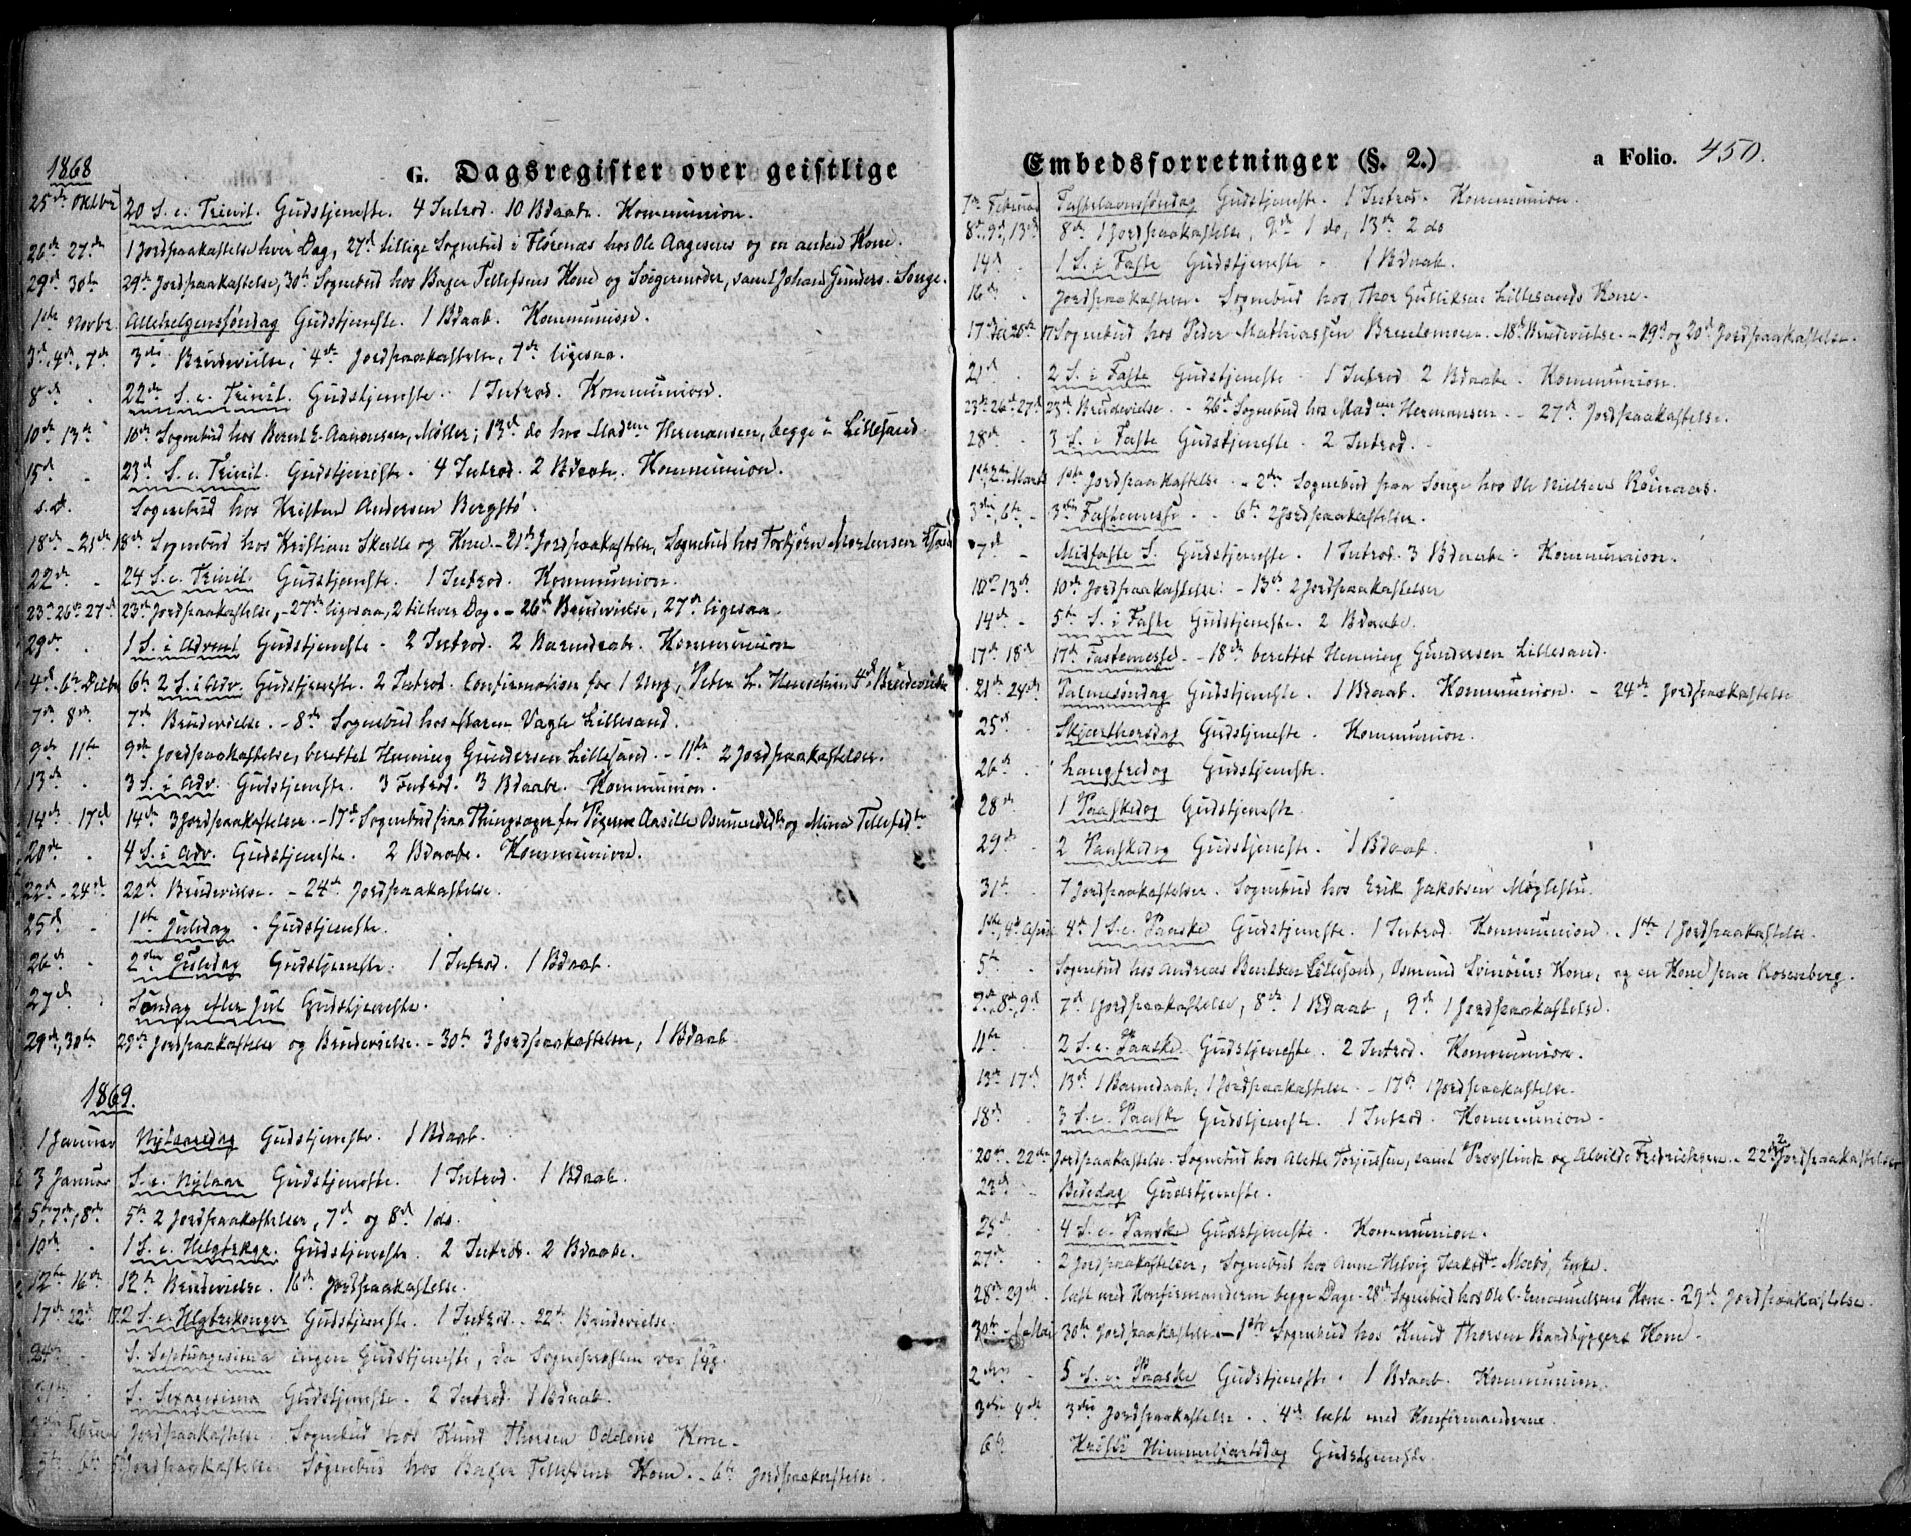 1868
G. Dagsregister over geistlige
25de Oktbr 20 S. e. Trinit. Gudstjeneste. 4 Introd. 10 Bdaab. Kommunion.
26de 27de 1 Jordpaakastelse hver Dag, 27de tillige Sognebud i Flørenæs hos Ole Aagesens og en anden Kone.
29de 30te 29de Jordpaakastelse, 30te Sognebud hos Bager Tellefsens Kone og Svigermoder, samt Johan Gunders. Songe.
1ste Novbr. Allehelgenssøndag Gudstjeneste. 1 Bdaab. Kommunion.
3die, 4de, 7de 3die Brudevielse, 4de Jordpaakastelse, 7de ligesaa.
8de 22de S. e. Trinit. Gudstjeneste. 1 Introd. Kommunion.
10de 13de 10de Sognebud hos Bernt E. Aanonsen, Møller; 13de do hos Madme Hermansen, begge i Lillesand.
15de 23de S. e. Trinit. Gudstjeneste. 4 Introd. 2 Bdaab. Kommunion.
s.d. Sognebud hos Kristen Andersen Bergstø.
18de - 21de 18de Sognebud hos Kristian Skalle og Kone - 21de Jordpaakastelse, Sognebud hos Torbjørn Mortensen
22de 24 S. e. Trinit. Gudstjeneste. 1 Introd. Kommunion.
23de 26de 27de 23de Jordpaakastelse, - 27de ligesaa, 2 til hver Dag. - 26de Brudevielse, 27de ligesaa.
29de 1 S. i Advent Gudstjeneste. 2 Introd. 2 Barnedaab. Kommunion
4de, 6te Decbr 6te 2 S. i Adv. Gudstjeneste. 2 Introd. Confirmation for 1 Ung, Peter L. 4de Brudevielse
7de 8de 7de Brudevielse. - 8de Sognebud hos Maren Vagle Lillesand.
9de 11te 9de Jordpaakastelse, berettet Henning Gundersen Lillesand. - 11te 2 Jordpaakastelser.
13de 3 S. i Adv. Gudstjeneste. 3 Introd. 3 Bdaab. Kommunion.
14de 17de 14de 3 Jordpaakastelser - 17de Sognebud paa Thingsager for Pigerne Aasille Osmundsd. og Mina Tellefsdtr
20de 4 S. i Adv. Gudstjeneste. 2 Bdaab. Kommunion.
22de - 24de 22de Brudevielse. - 24de Jordpaakastelse.
25de 1ste Juledag. Gudstjeneste.
26de 2den Juledag Gudstjeneste. 1 Introd. 1 Bdaab.
27de Søndag efter Jul Gudstjeneste.
29de, 30te 29de Jordpaakastelse og Brudevielse. - 30te 3 Jordpaakastelser, 1 Bdaab
1869.
1 Januar Nytaarsdag Gudstjeneste. 1 Bdaab.
3 Januar S. e. Nytaar Gudstjeneste. 1 Introd. 1 Bdaab.
5te, 7de, 8de 5te 2 Jordpaakastelser, 7de og 8de 1 do.
10de 1 S. e. Helgtrkgr. Gudstjeneste. 2 Introd. 2 Bdaab.
12te 16de 12te Brudevielse. 16de Jordpaakastelse.
17de 22de 17. 2 S. e. Hlgtrekonger Gudstjeneste. 1 Introd. 22de Brudevielse.
24de S. Septuagesima ingen Gudstjeneste, da Sognepresten var syg.
31te S. Sexagesima Gudstjeneste. 2 Introd. 1 Bdaab.
Februar Jordpaakastelse. Sognebud hos Knud Thorsen Oddens Kone.
5te 6te Jordpaakastelse. Sognebud hos Bager Tellefsens Kone. - 6te Jordpaakastelse.
Embedsforretninger (§. 2.)
a Folio. 450.
7de Februar Fastelavnssøndag Gudstjeneste. 1 Introd. Kommunion.
8de, 9de, 13de 8de 1 Jordpaakastelse, 9de 1 do, 13de 2 do
14de 1 S. i Faste Gudstjeneste. 1 Bdaab.
16de Jordpaakastelse. Sognebud hos Thor Gulliksen Lillesands Kone.
17de til 20de 17 Sognebud hos Peder Mathiassen - 18de Brudevielse. - 19de og 20de Jordpaakastelse.
21de 2 S. i Faste Gudstjeneste. 1 Introd 2 Bdaab. Kommunion.
23de 26de 27de 23de Brudevielse. - 26de Sognebud hos Madme Hermansen. - 27de Jordpaakastelse.
28de 3 S. i Faste Gudstjeneste. 2 Introd.
1ste, 2den Marts 1ste Jordpaakastelse. - 2den Sognebud paa Songe hos Ole Nielsens
3die, 6te 3die Fastemesse. - 6te 2 Jordpaakastelser.
7de Midfaste S. Gudstjeneste. 1 Introd. 3 Bdaab. Kommunion.
10de 13de 10de Jordpaakastelse. - 13de 2 Jordpaakastelser
14de 5te S. i Faste Gudstjeneste. 2 Bdaab.
17de 18de 17de Fastemesse. - 18de berettet Henning Gundersen Lillesand.
21de 24de Palmesøndag Gudstjeneste. 1 Bdaab. Kommunion. - 24de Jordpaakastelse
25de Skjærthorsdag Gudstjeneste. Kommunion.
26de Langfredag Gudstjeneste.
28de 1 Paaskedag Gudstjeneste
29de 2 Paaskedag Gudstjeneste. 1 Bdaab.
31te 7 Jordpaakastelser. Sognebud hos Erik Jakobsen Møglestu.
1ste, 4de April 4de 1 S. e. Paaske Gudstjeneste. 1 Introd. Kommunion. - 1ste 1 Jordpaakastelse.
5te Sognebud hos Andreas Bentsen Lillesand, Osmund Svinøens Kone, og en Kone paa Rosenberg.
7de, 8de, 9de 7de 1 Jordpaakastelse, 8de 1 Bdaab, 9de 1 Jordpaakastelse.
11te 2 S. e. Paaske. Gudstjeneste. 2 Introd. Kommunion.
13de 17de 13de 1 Barnedaab, 1 Jordpaakastelse. - 17de 1 Jordpaakastelse.
18de 3 S. e. Paaske Gudstjeneste. 1 Introd. Kommunion.
20de 22de Jordpaakastelse. Sognebud hos Alette Torjussen, samt og Alvilde Fredriksen. - 22de 2 Jordpaakastelser
23de Bededag Gudstjeneste.
25de 4 S. e. Paaske Gudstjeneste. Kommunion.
27de 2 Jordpaakastelser, Sognebud hos Anne Helvig Isaksdtr Moebø, Enke.
28de 29de læst med Konfirmanderne begge Dage - 28de Sognebud hos Ole C. Emanuelsens Kone - 29de Jordpaakastelse.
30te - 1 Mai 30te Jordpaakastelse - 1ste Sognebud hos Knud Thorsen Baadbyggers Kone.
2den 5 S. e. Paaske Gudstjeneste. 1 Bdaab. Kommunion.
3die 4de 3die Jordpaakastelse. 4de læst med Konfirmanderne.
6te Kristi Himmelfartsdag Gudstjeneste.